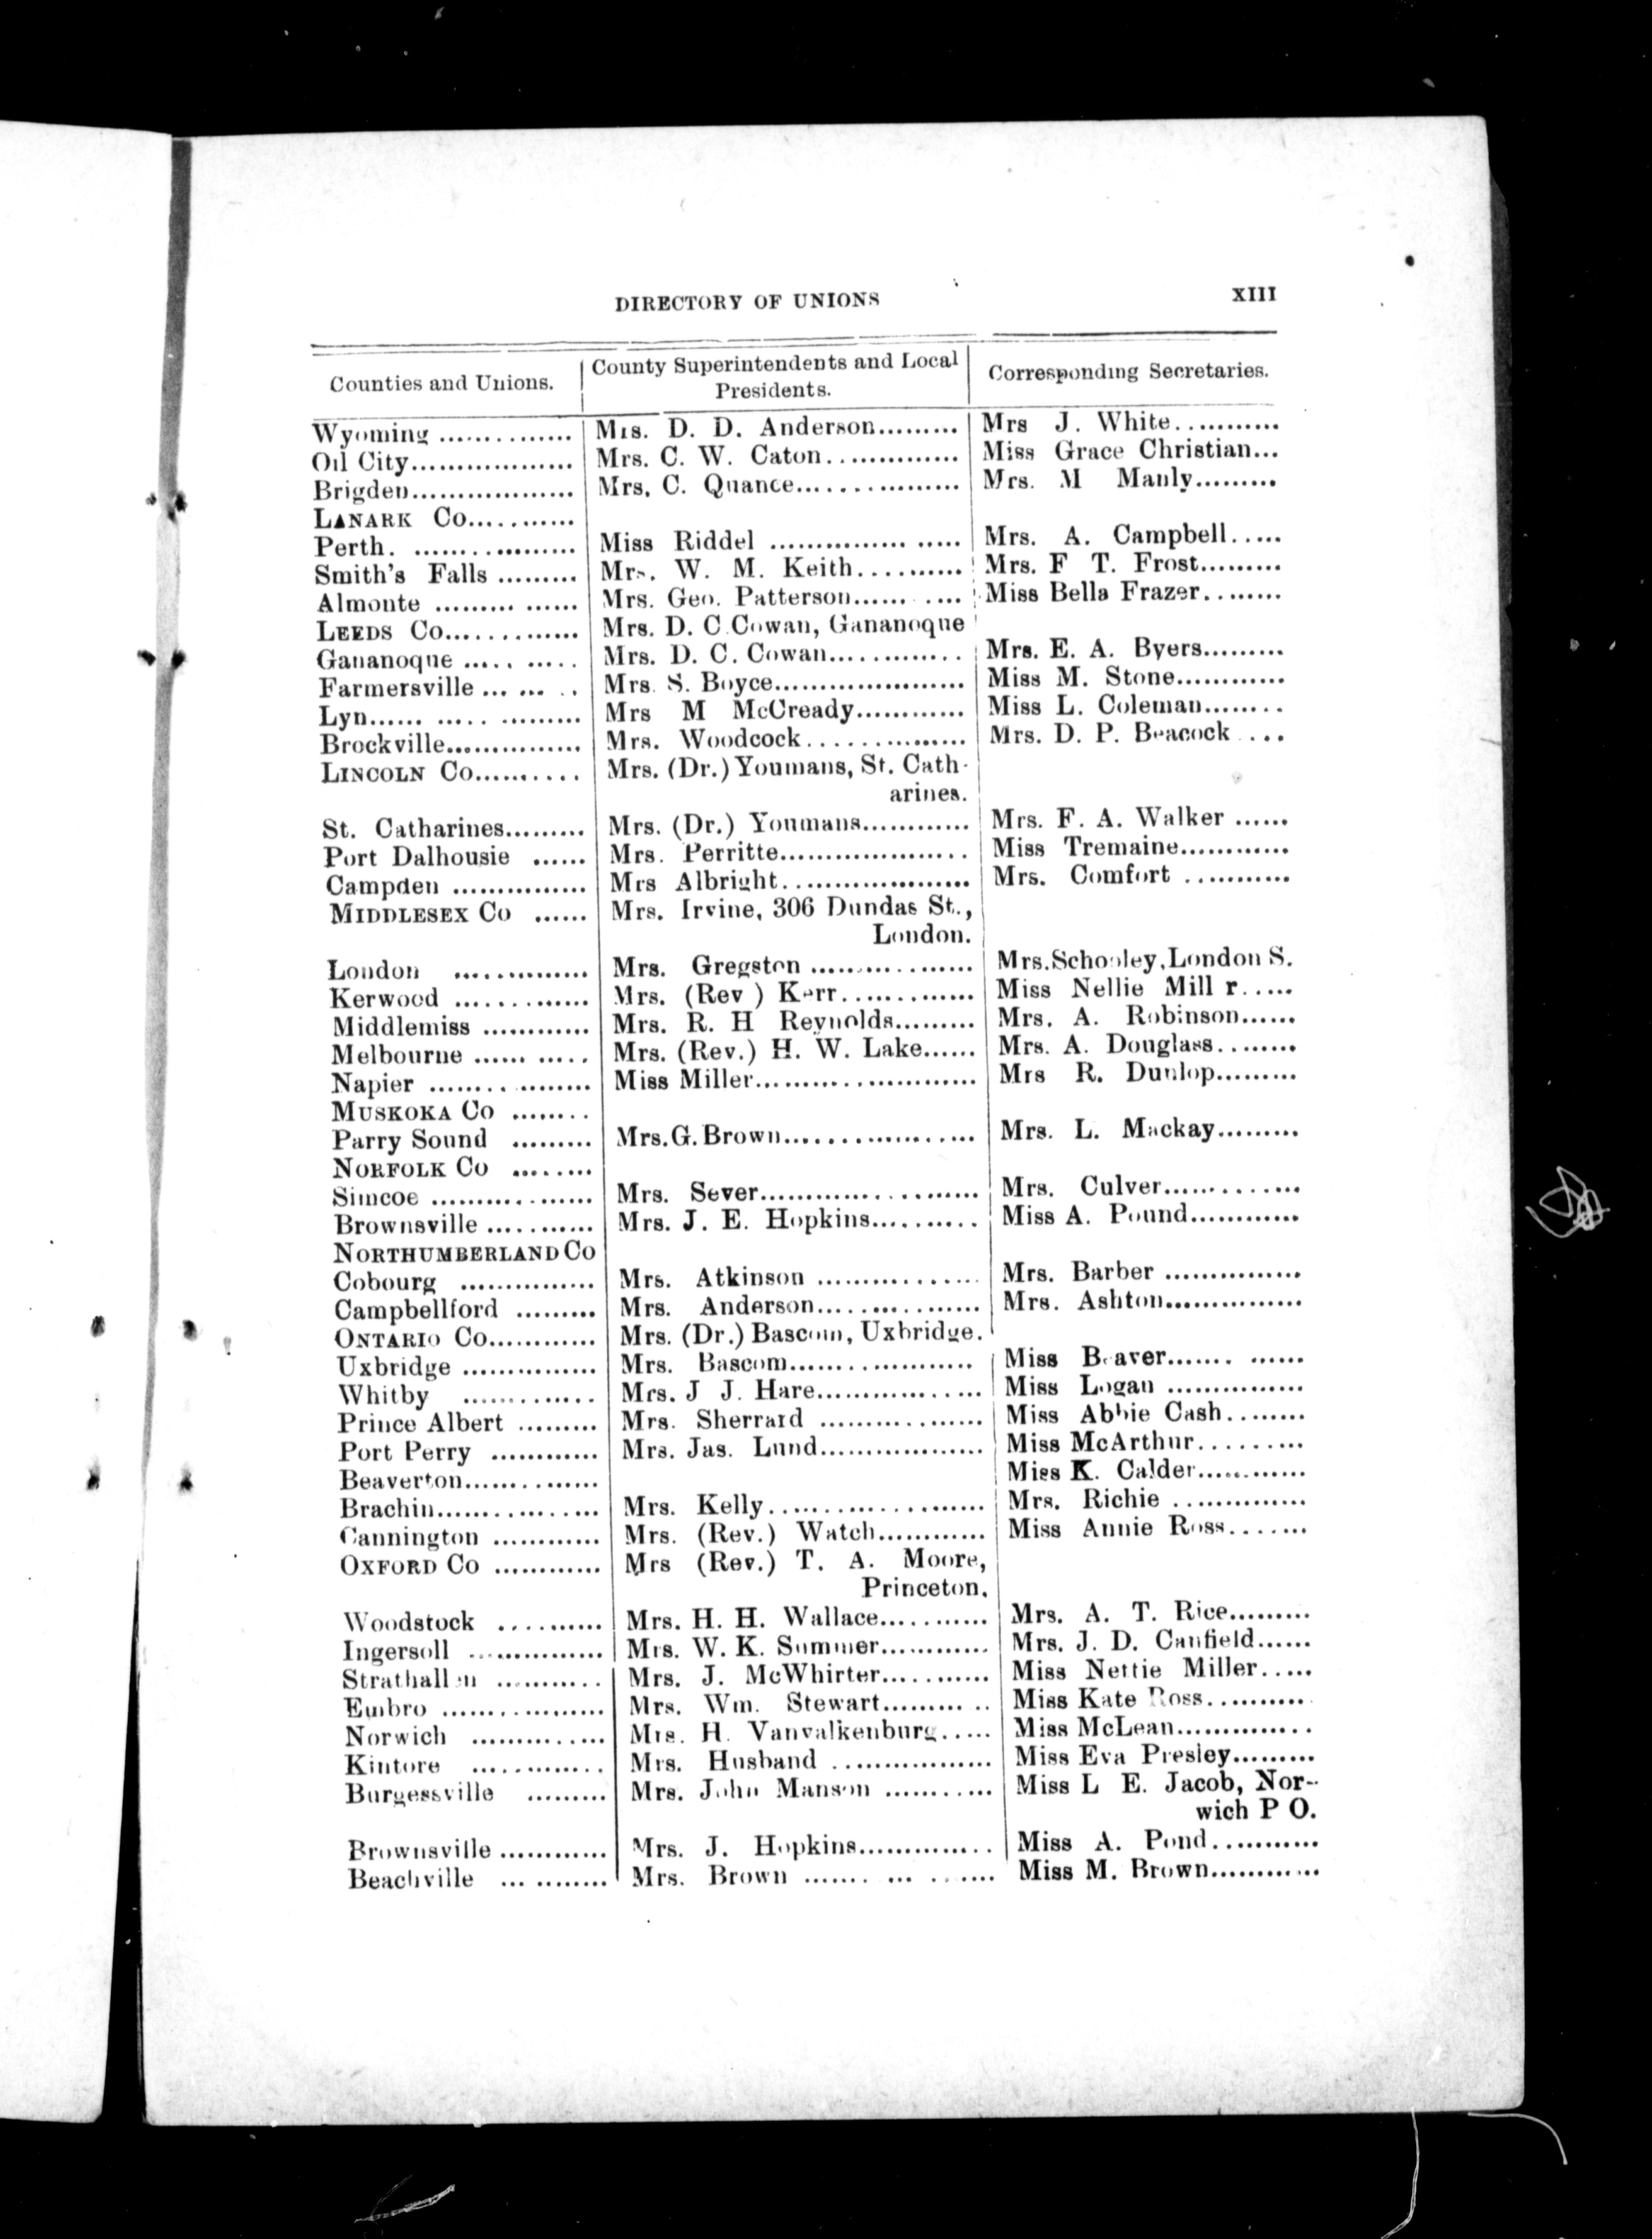 DIRECTORY OF UNIONS XIII
Counties and Unions. County Superintendents and Local Presidents. Corresponding Secretaries.
Wyoming .............. Mrs. D. D. Anderson......... Mrs J. White............
Oil City.................. Mrs. C. W. Caton.............. Miss Grace Christian...
Brigden.................. Mrs. C. Quance.................. Mrs. M Manly.........
LANARK Co............
Perth. .................. Miss Riddel ..................... Mrs. A. Campbell.....
Smith's Falls ......... Mrs. W. M. Keith........... Mrs. F T. Frost.........
Almonte ............... Mrs. Geo. Patterson.......... Miss Bella Frazer........
LEEDS Co............. Mrs. D. C. Cowan, Gananoque
Gananoque .......... Mrs. D. C. Cowan............. Mrs. E. A. Byers.........
Farmersville ... ... .. Mrs. S. Boyce..................... Miss M. Stone............
Lyn...... ..... ......... Mrs M McCready............ Miss L. Coleman........
Brockville............... Mrs. Woodcock.................. Mrs. D. P. Beacock ....
LINCOLN Co.......... Mrs. (Dr.) Youmans, St. Cath-
arines.
St. Catharines......... Mrs. (Dr.) Youmans............ Mrs. F. A. Walker ......
Port Dalhousie ...... Mrs. Perritte..................... Miss Tremaine............
Campden ............... Mrs Albright..................... Mrs. Comfort ...........
MIDDLESEX Co ...... Mrs. Irvine, 306 Dundas St.,
London.
London ............... Mrs. Gregston .................. Mrs. Schooley, London S.
Kerwood .............. Mrs. (Rev ) Kerr............... Miss Nellie Mill r.....
Middlemiss ............ Mrs. R. H Reynolds......... Mrs. A. Robinson......
Melbourne ...... ..... Mrs. (Rev.) H. W. Lake...... Mrs. A. Douglass........
Napier .................. Miss Miller........................ Mrs R. Dunlop.........
MUSKOKA Co ........
Parry Sound ......... Mrs. G. Brown..................... Mrs. L. Mackay.........
NORFOLK Co ........
Simcoe .................. Mrs. Sever........................ Mrs. Culver...............
Brownsville ............ Mrs. J. E. Hopkins.......... Miss A. Pound............
NORTHUMBERLAND Co
Cobourg ............... Mrs. Atkinson .................. Mrs. Barber ...............
Campbellford ......... Mrs. Anderson.................. Mrs. Ashton...............
ONTARIO Co............ Mrs. (Dr.) Bascom, Uxbridge.
Uxbridge ............... Mrs. Bascom..................... Miss Beaver....... ......
Whitby ............... Mrs. J J. Hare.................. Miss Logan ...............
Prince Albert ......... Mrs. Sherrard .................. Miss Abbie Cash........
Port Perry ............ Mrs. Jas. Lund.................. Miss McArthur..........
Beaverton............... Miss K. Calder............
Brachin.................. Mrs. Kelly........................ Mrs. Richie ...............
Cannington ............ Mrs. (Rev.) Watch............ Miss Annie Ross.......
OXFORD Co ............ Mrs (Rev.) T. A. Moore,
Princeton.
Woodstock .......... Mrs. H. H. Wallace........... Mrs. A. T. Rice.........
Ingersoll ............... Mrs. W. K. Summer............ Mrs. J. D. Canfield......
Strathallen ........... Mrs. J. McWhirter........... Miss Nettie Miller.....
Embro .................. Mrs. Wm. Stewart......... .. Miss Kate Ross...........
Norwich ............... Mrs. H. Vanvalkenburg..... Miss McLean..............
Kintore ............... Mrs. Husband .................. Miss Eva Presley.........
Burgessville ......... Mrs. John Manson ........... Miss L E. Jacob, Nor-
wich P O.
Brownsville ............ Mrs. J. Hopkins............... Miss A. Pond............
Beachville ... ......... Mrs. Brown ....... ... ...... Miss M. Brown............